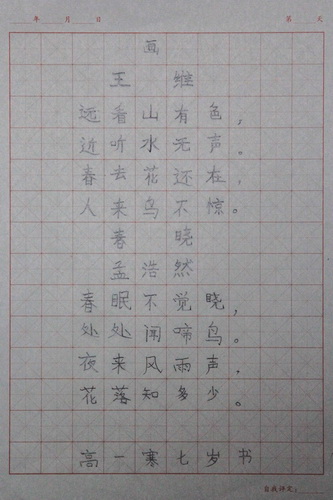 年 月 日 第 天
画
王 维
远看山有色，
近听水无声。
春去花还在，
人来鸟不惊。
春 晓
孟浩然
春眠不觉晓，
处处闻啼鸟。
夜来风雨声，
花落知多少。
高一寒七岁书
自我评定：